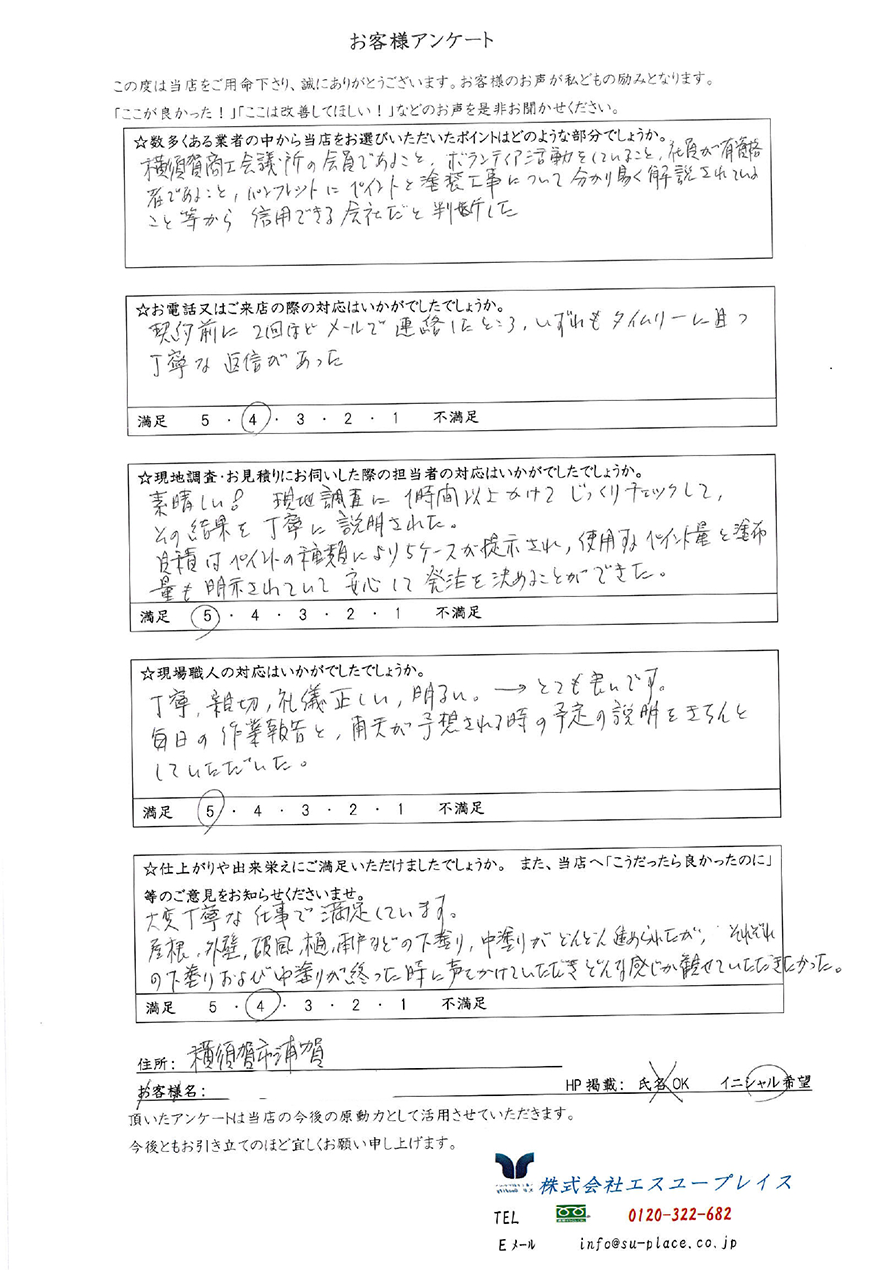 お客様アンケート
この度は当店をご用命下さり、誠にありがとうございます。お客様のお声が私どもの励みとなります。
「ここが良かった！」「ここは改善してほしい！」などのお声を是非お聞かせください。
☆数多くある業者の中から当店をお選びいただいたポイントはどのような部分でしょうか。
横須賀商工会議所の会員であること，ボランティア活動をしていること，社員が有資格
者であること，パンフレットにペイントと塗装工事について分かり易く解説されている
こと等から 信用できる会社だと判断した
☆お電話又はご来店の際の対応はいかがでしたでしょうか。
契約前に2回ほどメールで連絡したところ，いずれもタイムリーに且つ
丁寧な返信があった
満足 5 ・ 4 ・ 3 ・ 2 ・ 1 不満足
☆現地調査・お見積りにお伺いした際の担当者の対応はいかがでしたでしょうか。
素晴しい！ 現地調査に1時間以上かけてじっくりチェックして，
その結果を丁寧に説明された。
見積はペイントの種類により5ケースが提示され，使用するペイント量と塗布
量も明示されていて安心して発注を決めることができた。
満足 5 ・ 4 ・ 3 ・ 2 ・ 1 不満足
☆現場職人の対応はいかがでしたでしょうか。
丁寧，親切，礼儀正しい，明るい。→とても良いです。
毎日の作業報告と，雨天が予想される時の予定の説明をきちんと
していただいた。
満足 5 ・ 4 ・ 3 ・ 2 ・ 1 不満足
☆仕上がりや出来栄えにご満足いただけましたでしょうか。 また、当店へ「こうだったら良かったのに」
等のご意見をお知らせくださいませ。
大変丁寧な仕事で満足しています。
屋根，外壁，破風，樋，雨戸などの下塗り，中塗りがどんどん進められたが，それぞれ
の下塗りおよび中塗りが終った時に声をかけていただきどんな感じか観せていただきたかった。
満足 5 ・ 4 ・ 3 ・ 2 ・ 1 不満足
住所： 横須賀市浦賀
お客様名：
HP掲載： 氏名OK イニシャル希望
頂いたアンケートは当店の今後の原動力として活用させていただきます。
今後ともお引き立てのほど宜しくお願い申し上げます。
株式会社エスユープレイス
TEL 0120-322-682
Eメール info@su-place.co.jp